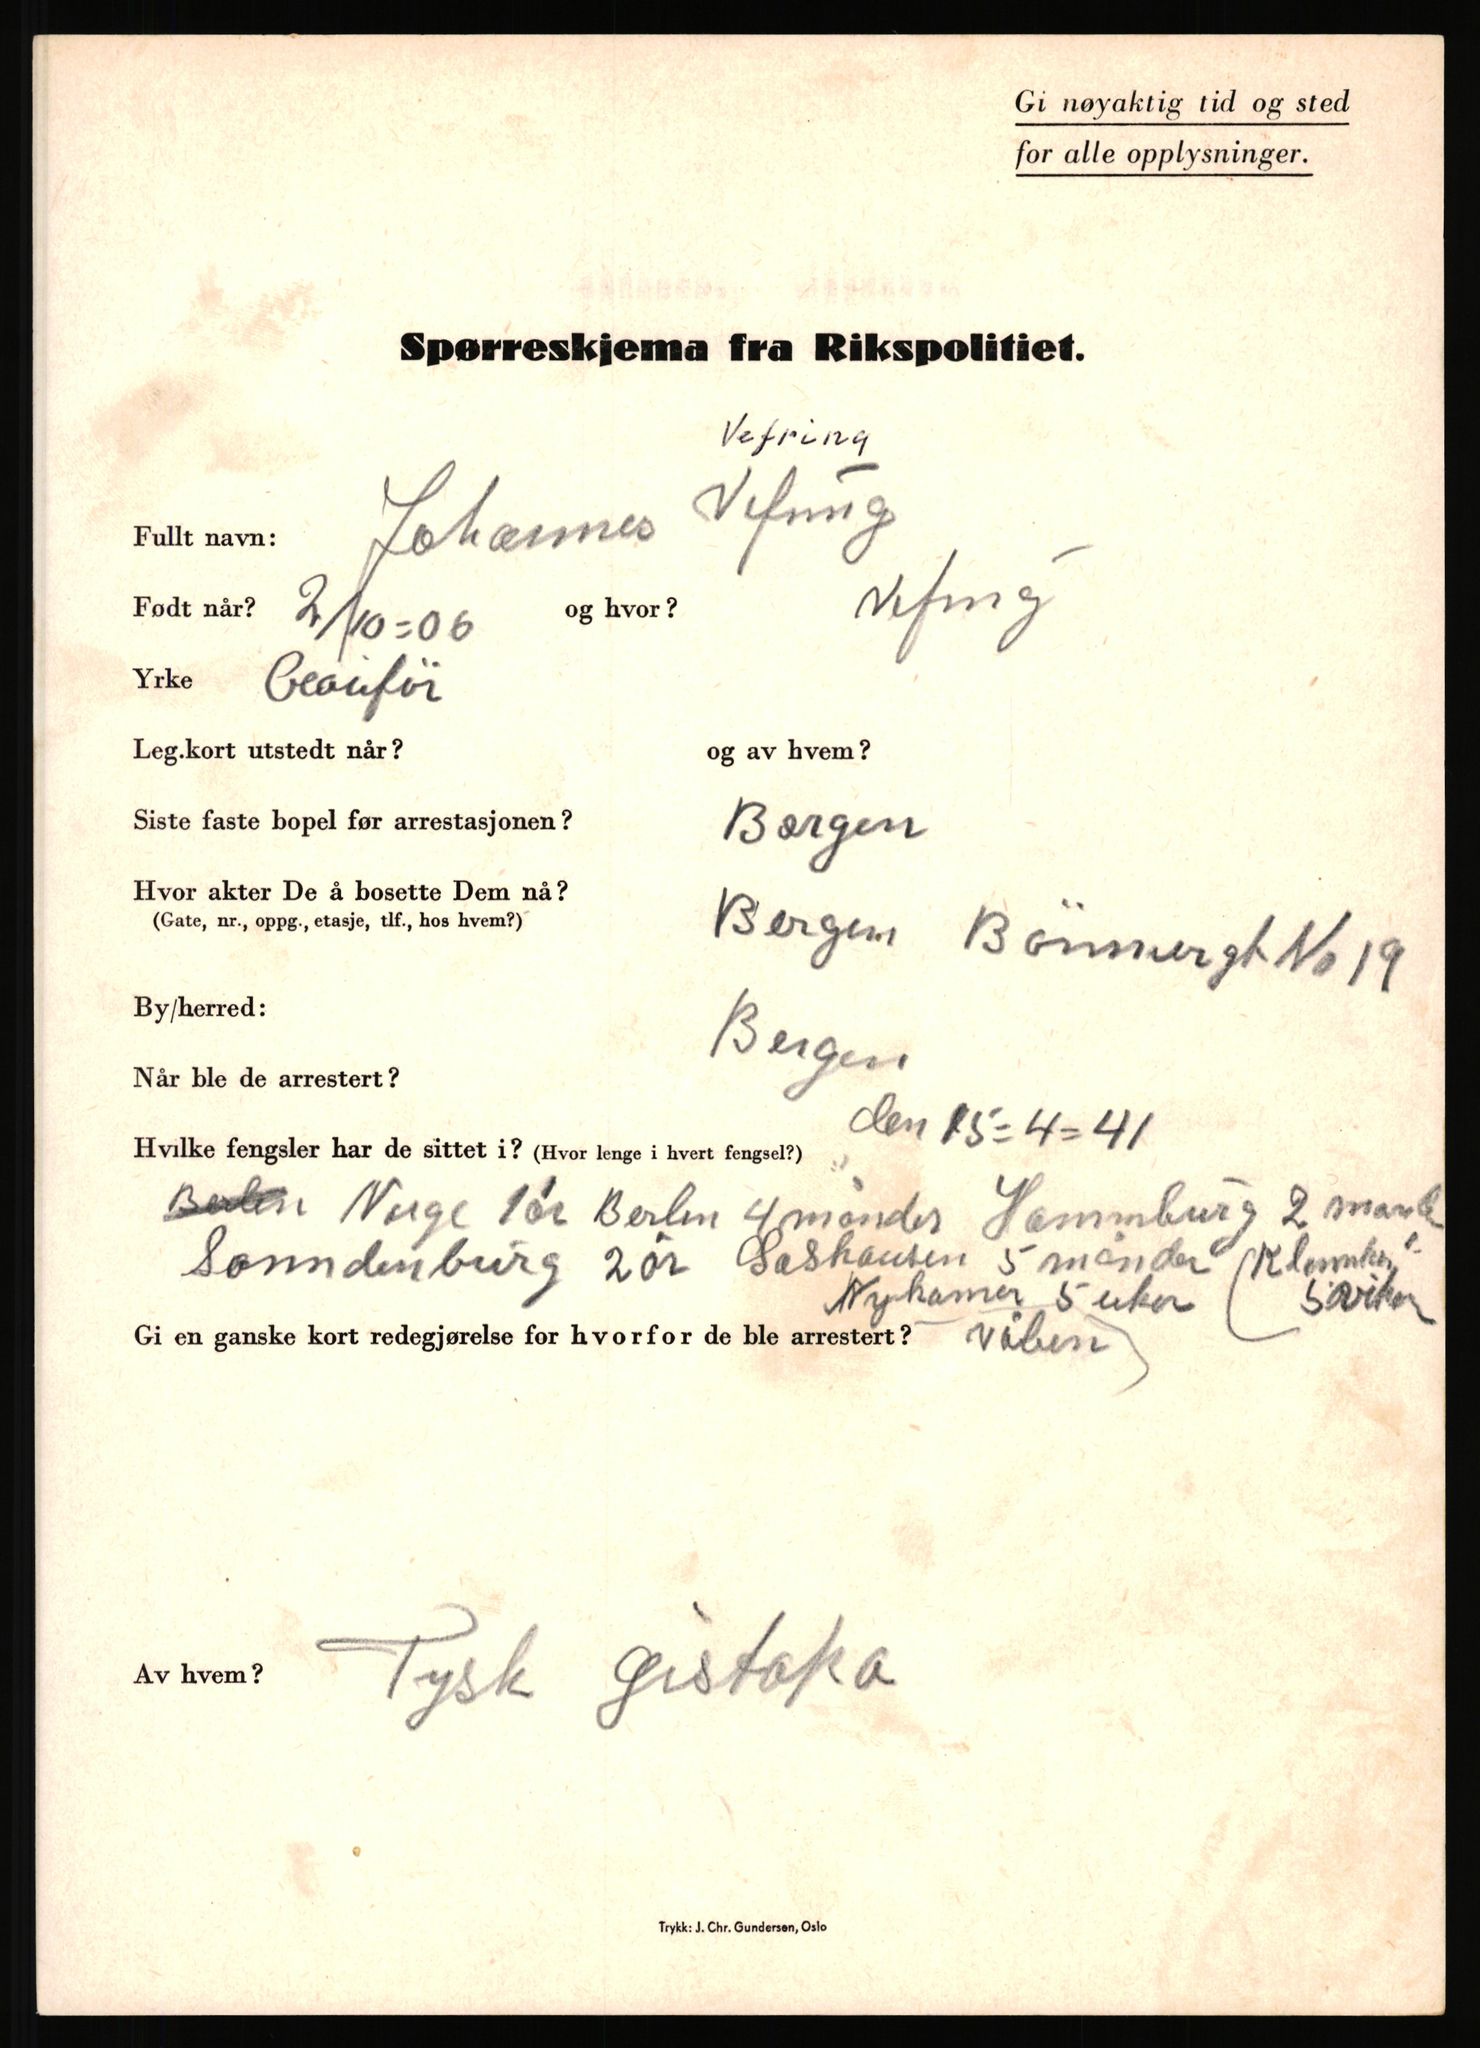 Gi nøyaktig tid og sted
for alle opplysninger.
Spørreskjema fra Rikspolitiet.
Vefring
Fullt navn: Johannes Vefring
Født når? 2/10=06 og hvor? Vefring
Yrke
Leg.kort utstedt når? og av hvem?
Siste faste bopel før arrestasjonen? Bergen
Hvor akter De å bosette Dem nå?
(Gate, nr., oppg., etasje, tlf., hos hvem?) Bergen No 19
By/herred: Bergen
Når ble de arrestert? den 15=4=41
Hvilke fengsler har de sittet i? (Hvor lenge i hvert fengsel?)
Berlen Norge 1 år Berlen 4 månder Hammburg 2
Sonndenburg 2 år Sashausen 5 månder
5 uker
Gi en ganske kort redegjørelse for hvorfor de ble arrestert? våben
Av hvem? Tysk gistapo
Trykk: J. Chr. Gundersen, Oslo